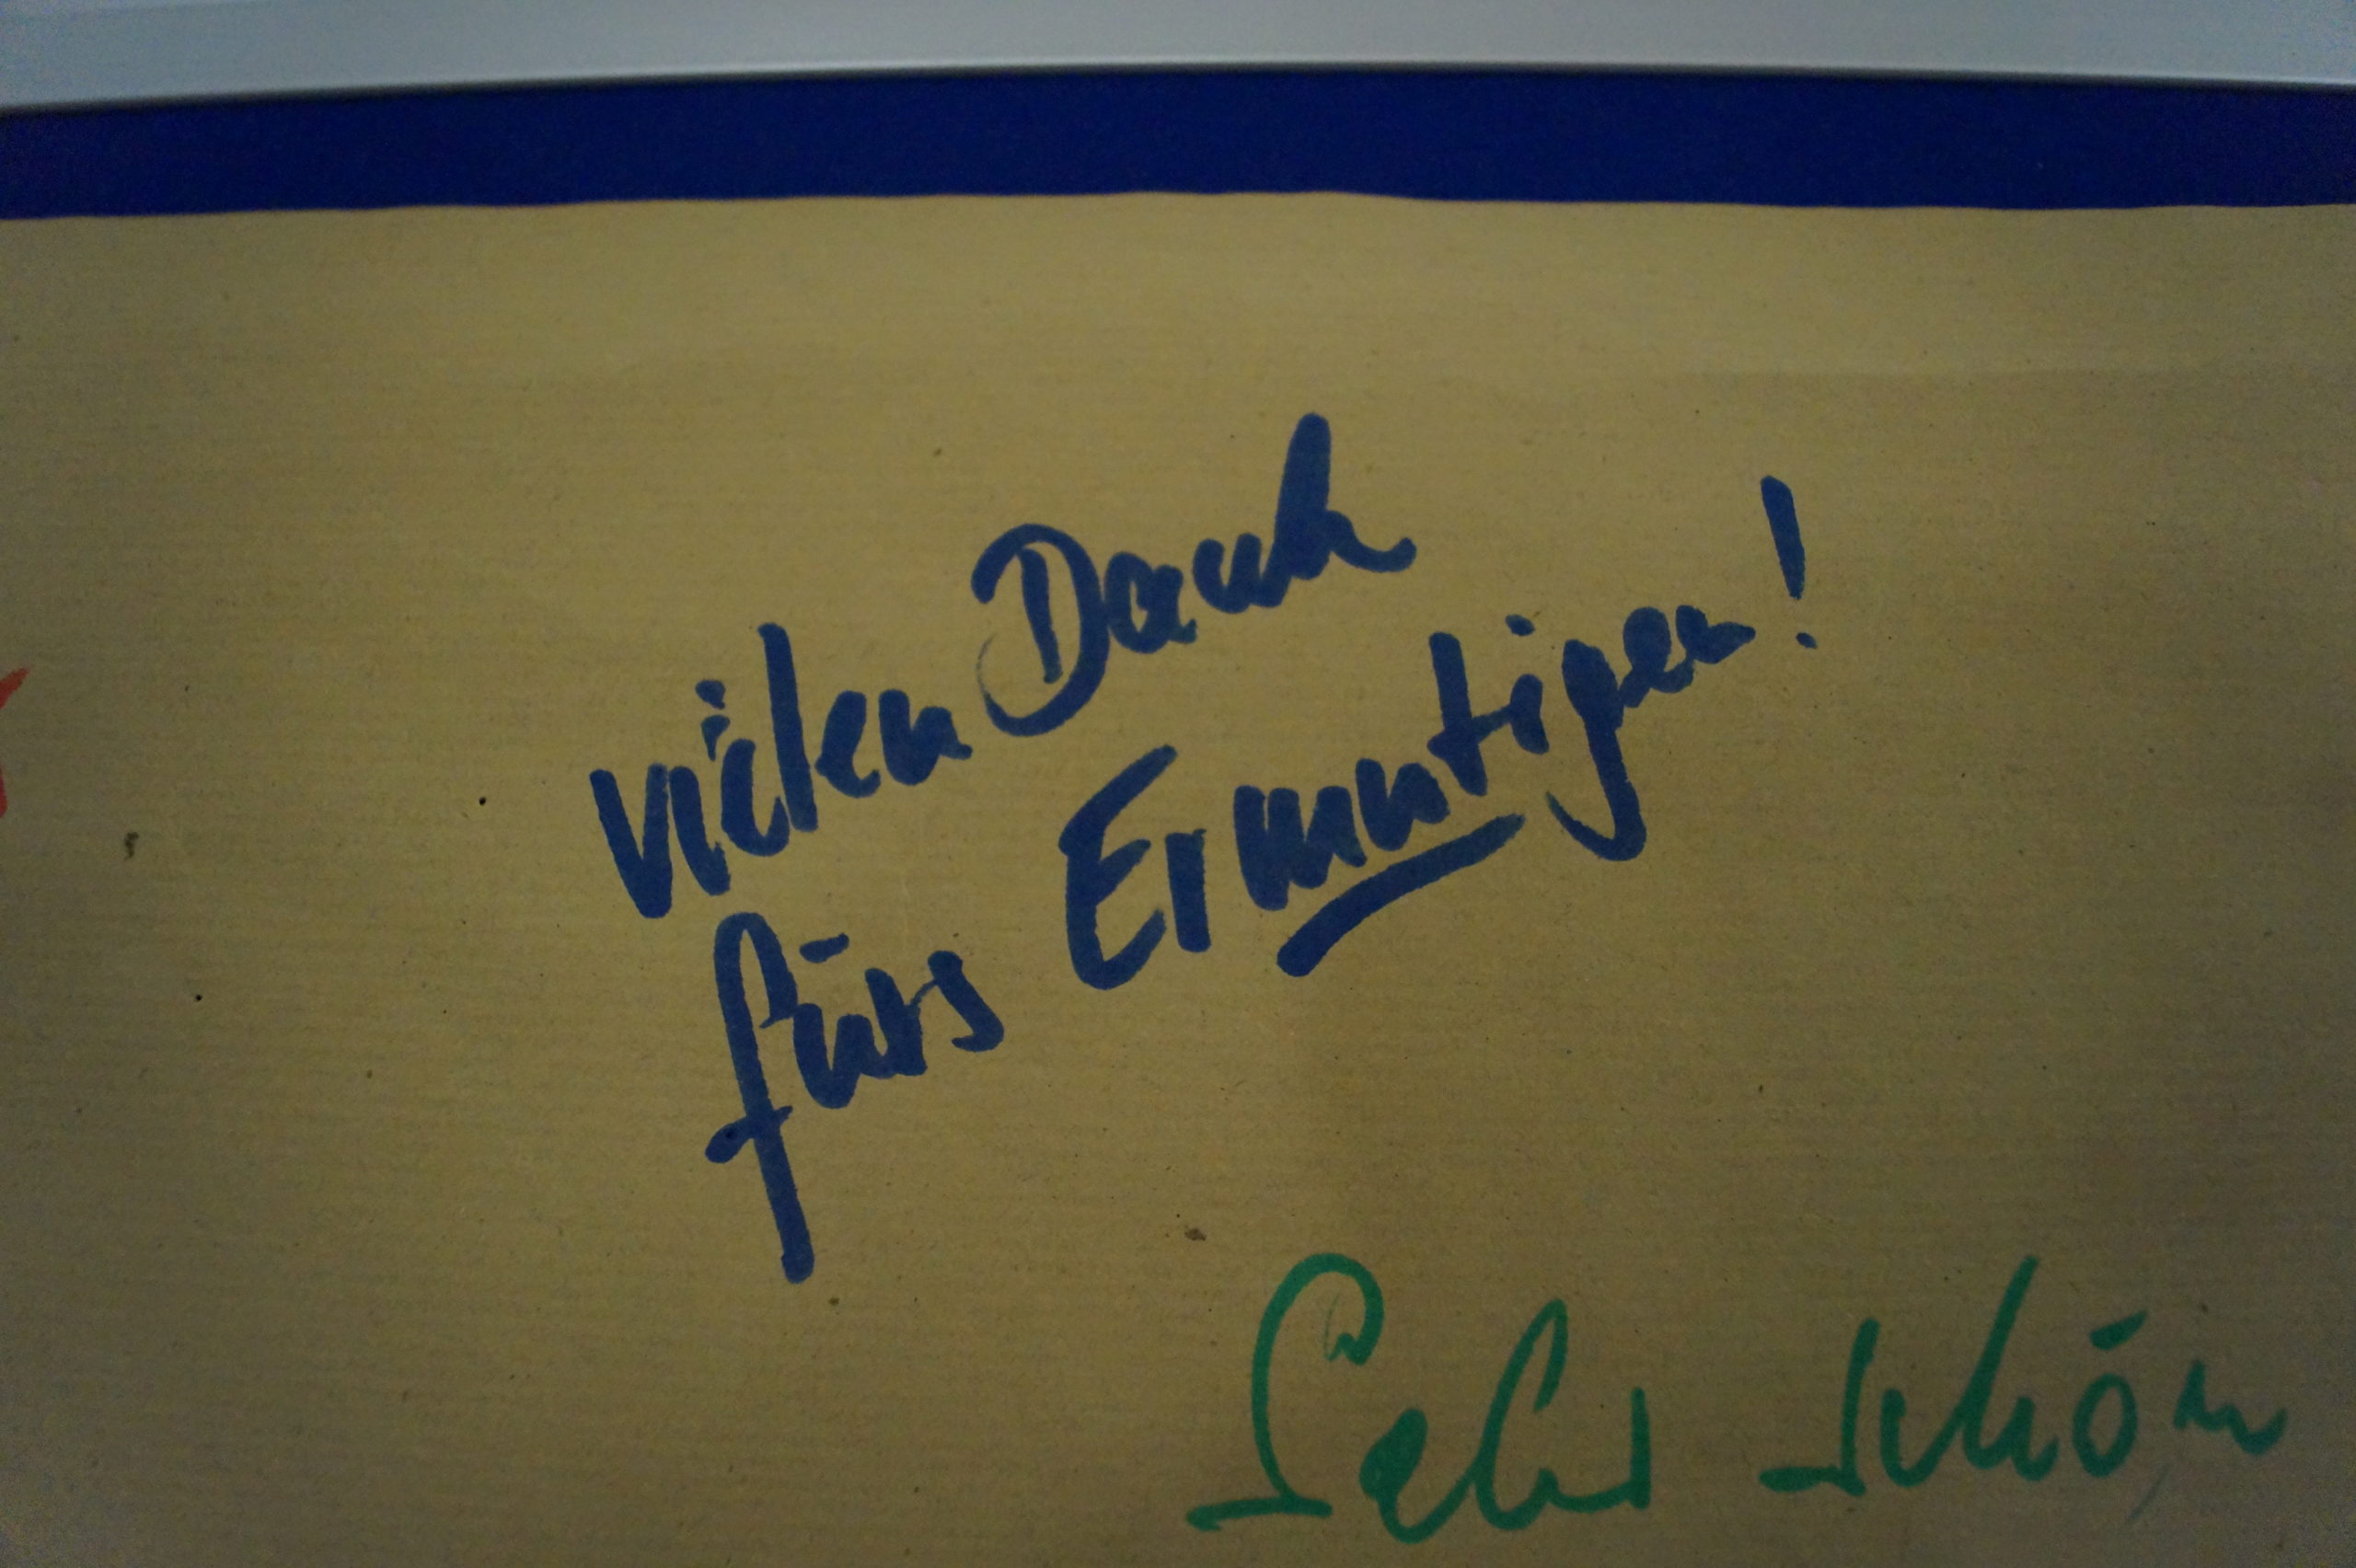 vielen Dank
fürs Ermutigen!
Sehr schön